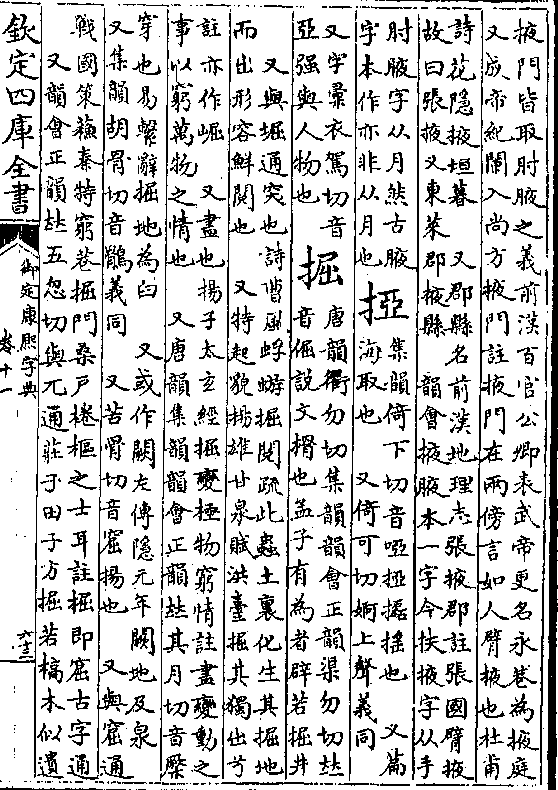 掖門皆取肘腋之義前漢百官公卿表武帝更名永巷為掖庭
又成帝紀闌入尚方掖門註掖門在兩傍言如人臂掖也杜甫
詩花隱掖垣暮 又郡縣名前漢地理志張掖郡註張國臂掖
故曰張掖又東萊郡掖縣 韻會掖腋本一字今扶掖字从手
肘腋字从月然古腋
字本作亦非从月也
掗
集韻倚下切音啞掗揺揺也 又篇
海取也 又倚可切婀上聲義同
又字彙衣駕切音
亞强與人物也
掘
唐韻衢勿切集韻韻會正韻渠勿切𠀤
音倔説文搰也孟子有為者辟若掘井
又與堀通突也詩曹風蜉蝣掘閱疏此蟲土裏化生其掘地
而出形容鮮閱也 又特起貌揚雄甘泉賦洪臺掘其獨出兮
註亦作崛 又盡也揚子太玄經掘變極物窮情註盡變動之
事以窮萬物之情也 又唐韻集韻韻會正韻𠀤其月切音橜
穿也易繫辭掘地為臼 又或作闕左傳隱元年闕地及泉
又集韻胡骨切音鶻義同 又苦骨切音窟揚也 又與窟通
戰國策蘇秦特窮巷掘門桑戸棬樞之士耳註掘即窟古字通
又韻會正韻𠀤五忽切與兀通莊子田子方掘若槁木似遺
欽定四庫全書
御定康熙字典
卷十一
六十二